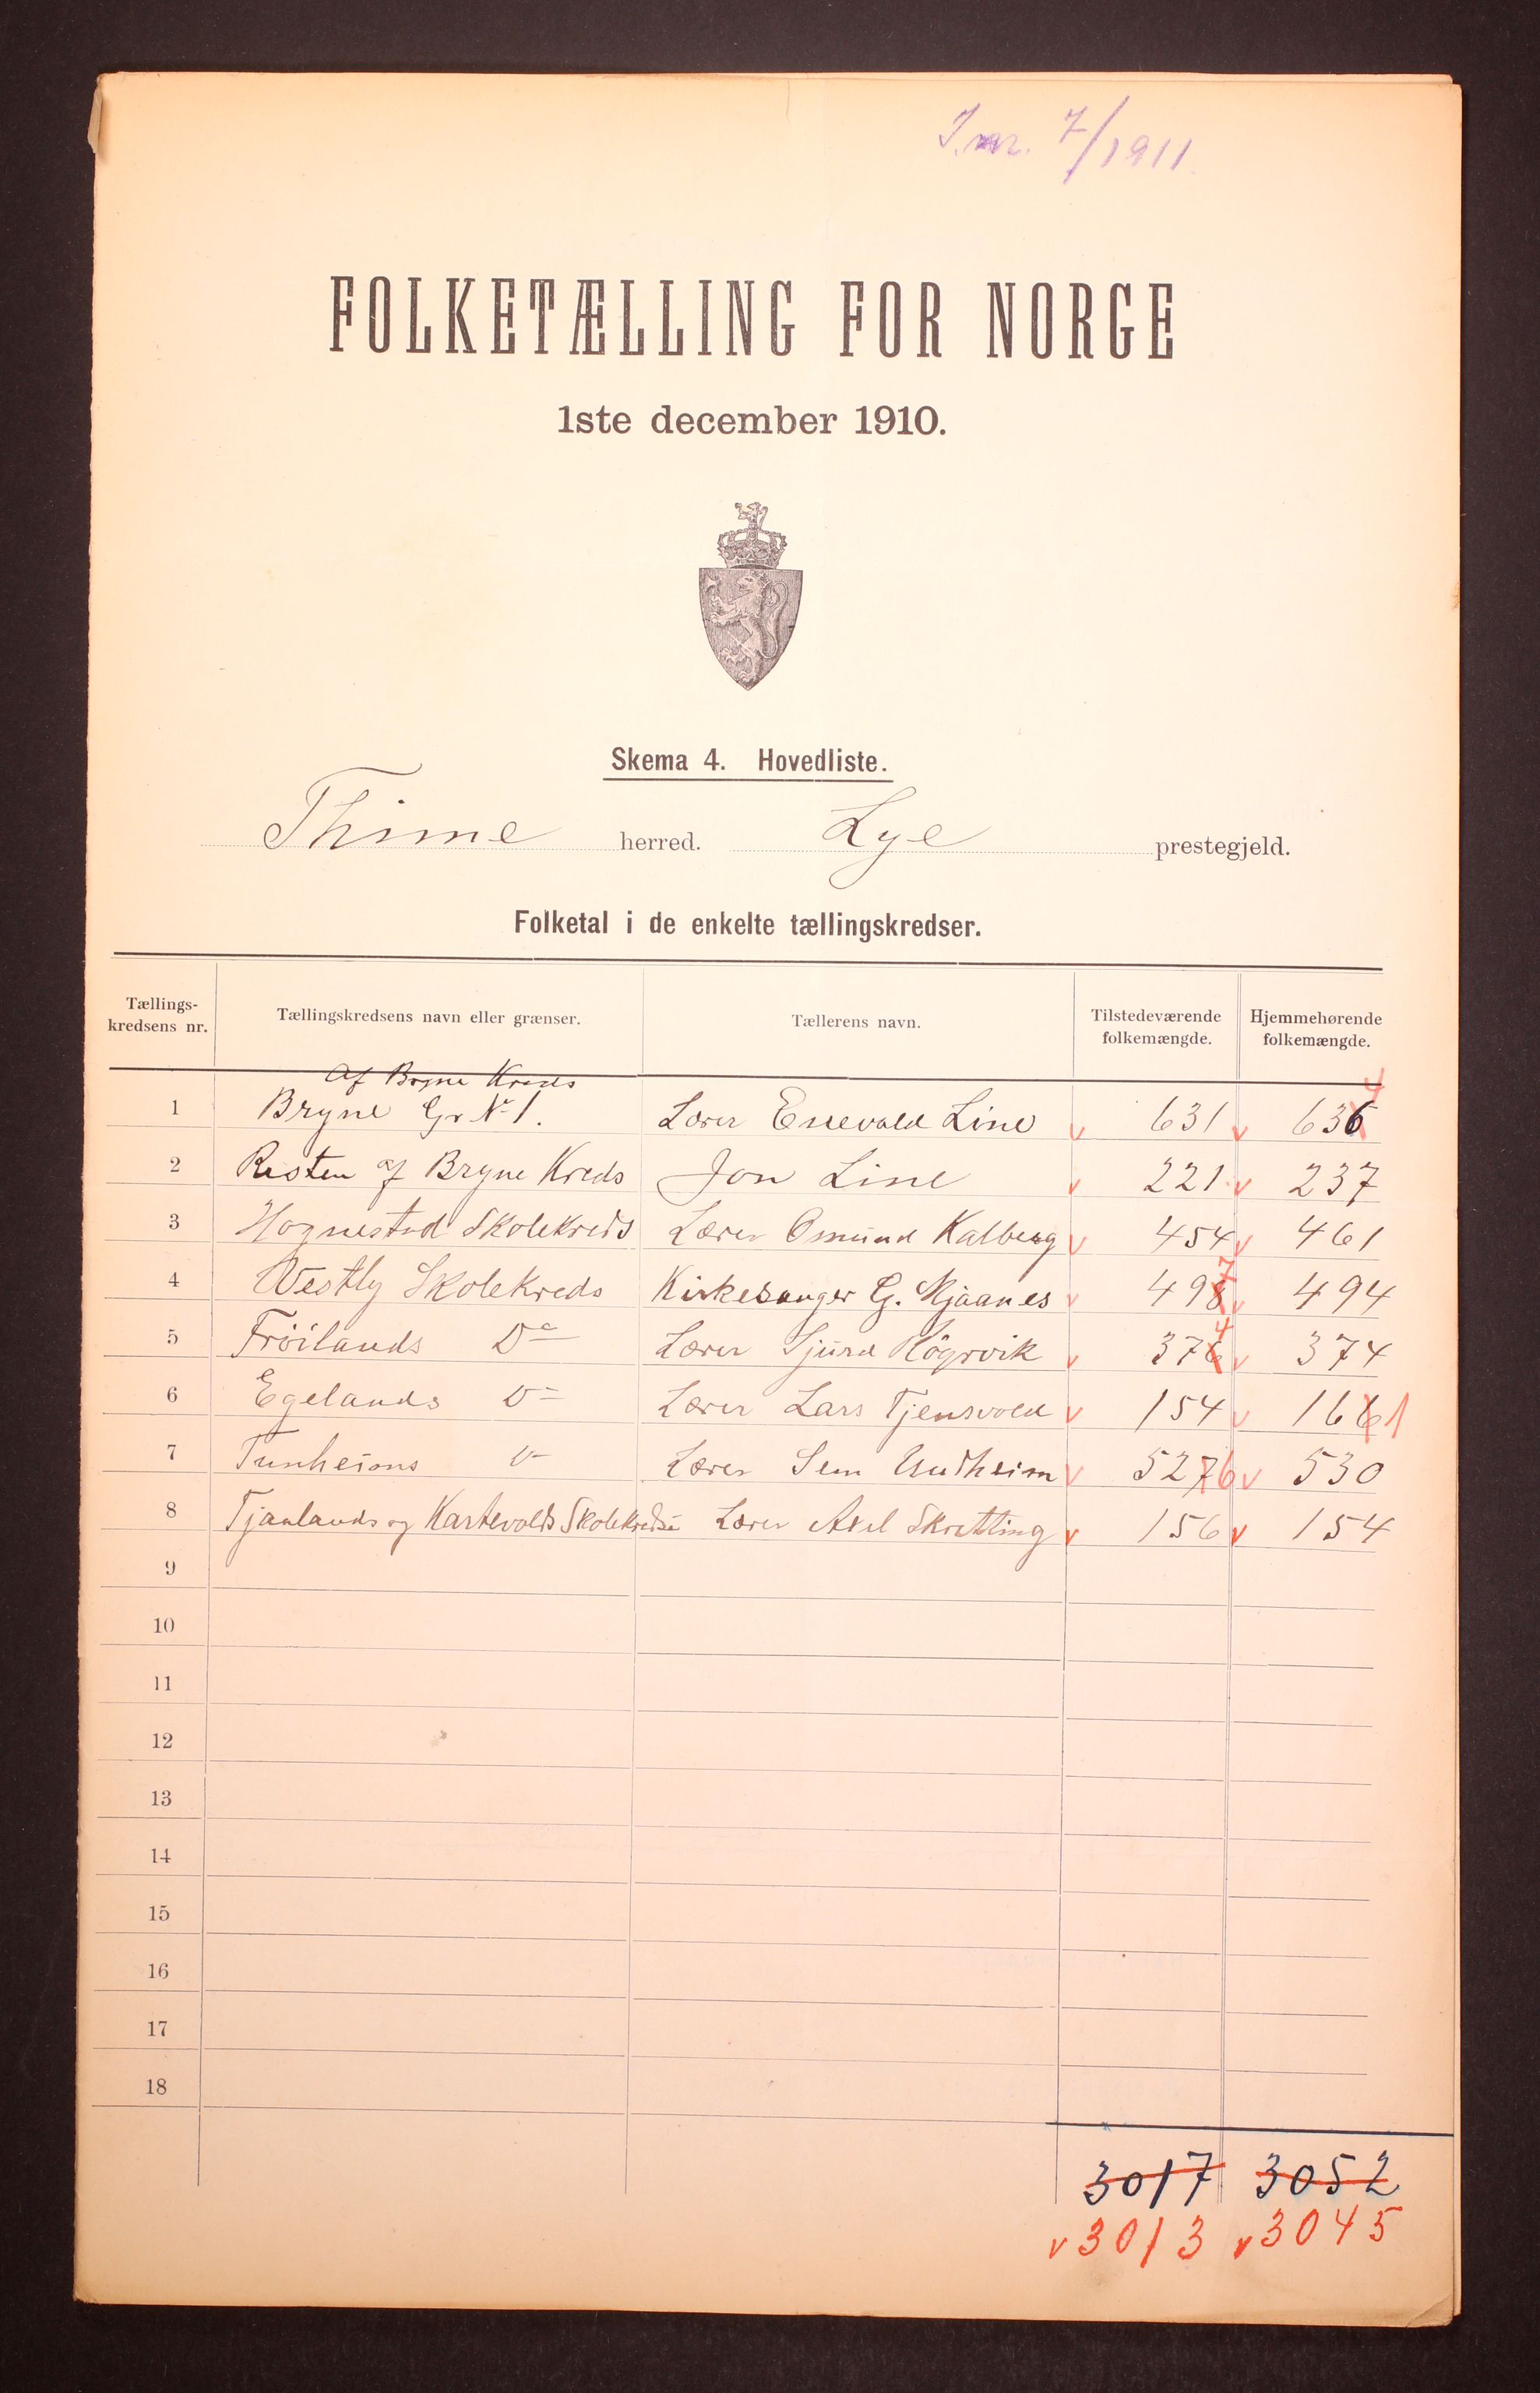 J.nr. 7/1911
FOLKETÆLLING FOR NORGE
1ste december 1910.
Skema 4. Hovedliste.
Thime herred. Lye prestegjeld.
Folketal i de enkelte tællingskredser.
Tællings-kredsens nr. Tællingskredsens navn eller grænser. Tællerens navn. Tilstedeværende folkemængde. Hjemmehørende folkemængde.
Af Bryne Kreds
1 Bryne Gr. No 1. Lærer Enevald Line v 631 v 636 4
2 Resten af Bryne Kreds Jon Line v 221 v 237
3 Hognestad Skolekreds Lærer Osmund Kalberg v 454 v 461
4 Vestly Skolekreds Kirkesanger G. Mjaanes v 498 7 v 494
5 Fröilands Do Lærer Sjurd Högrvik v 376 4 v 374
6 Egelands D= Lærer Lars Tjensvold v 154 v 166 1
7 Tunheims D= Lærer Sem v 527 6 v 530
8 Tjaalands og Kartevolds Skolekredse Lærer Axel Skretting v 156 v 154
9
10
11
12
13
14
15
16
17
18
3017 3052
v 3013 v 3045